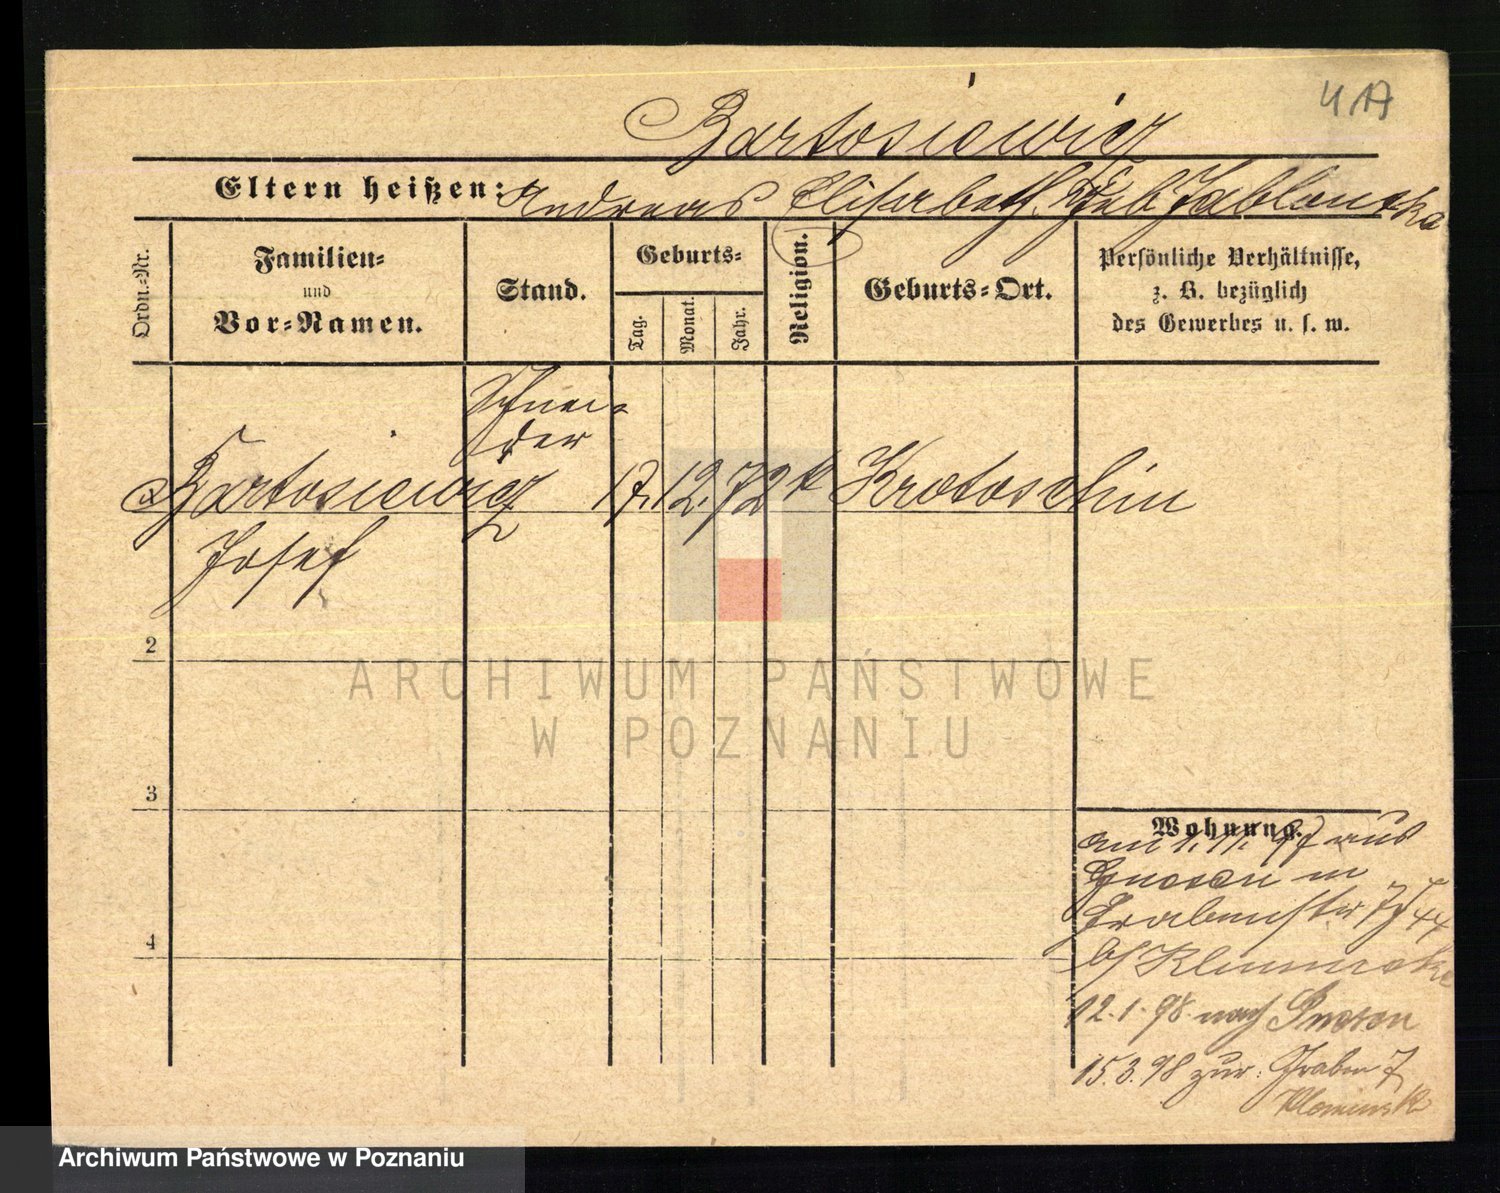 Bartosiewicz
Eltern heißen: Andreas Elisabeth geb Jablonska
Ordn.=Nr.
Familien=
und
Vor=Namen.
Stand.
Geburts=
Tag.
Monat.
Jahr.
Religion.
Geburts=Ort.
Persönliche Verhältnisse,
z. B. bezüglich
des Gewerbes u. s. w.
Schnei-
der
Bartosiewicz 17. 12. 72 k Krotoschin
Josef
2
3
4
Wohnung.
am 1. 11. 97 aus
Gnesen in
Grabenstr 7
b/
12.1.98 nach Gnesen
15.3.98 zur. Graben 7
ARCHIWUM PAŃSTWOWE
W POZNANIU
Archiwum Państwowe w Poznaniu